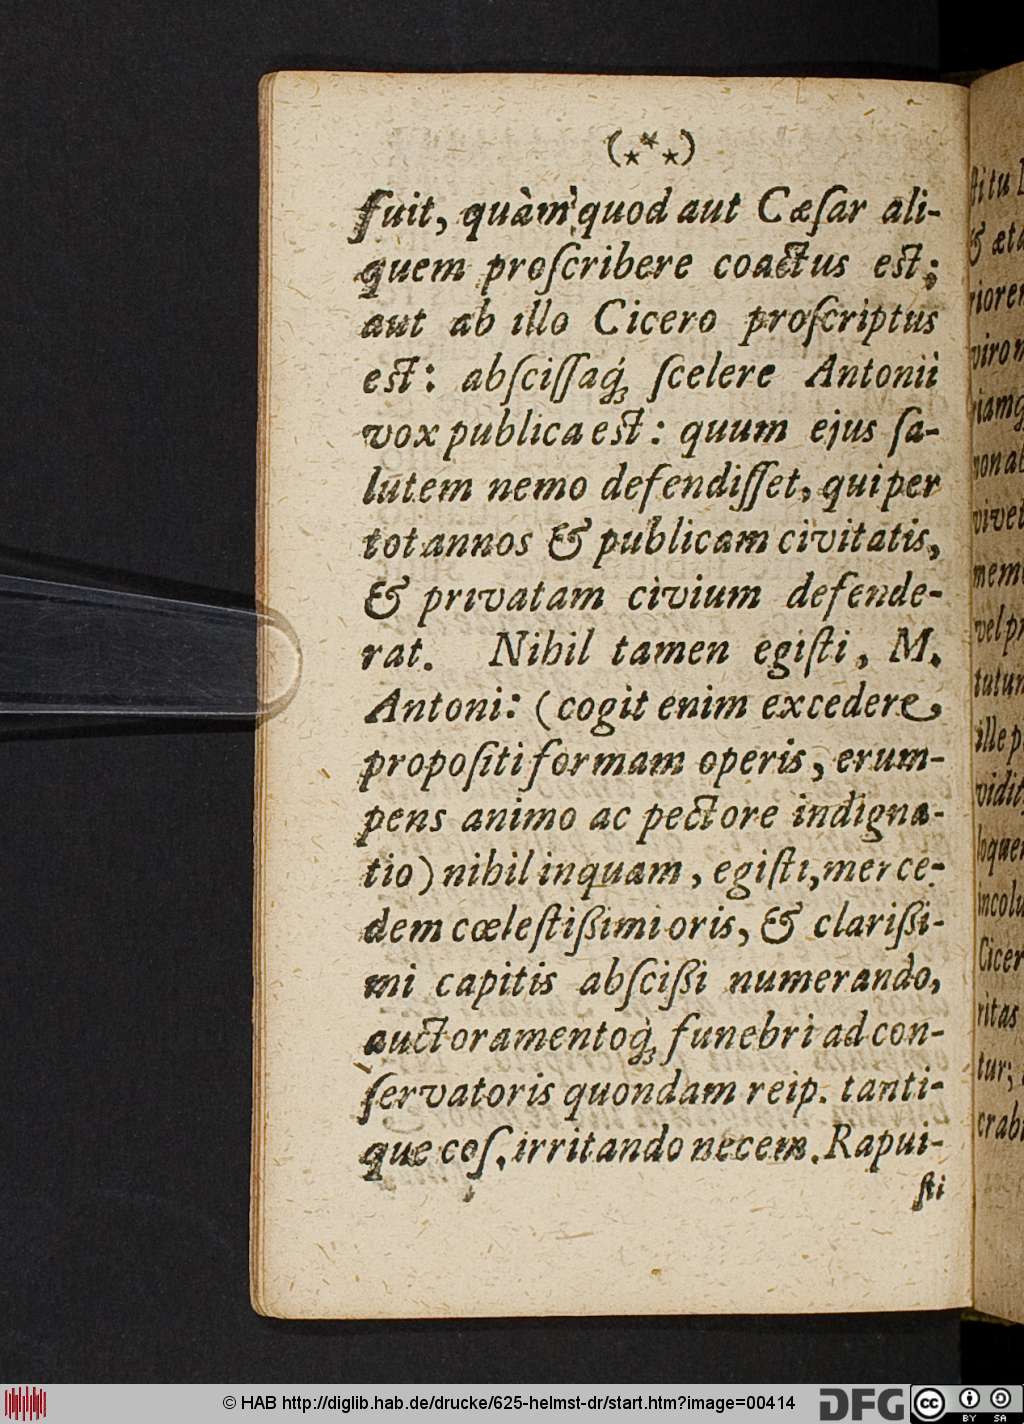 (⋆*⋆)
fuit, quàm quod aut Cæſar ali-
quem proſcribere coactus est;
aut ab illo Cicero proſcriptus
est: abſciſſaq́; ſcelere Antonii
vox publica est: quum ejus ſa-
lutem nemo defendiſſet, qui per
tot annos & publicam civitatis,
& privatam civium defende-
rat. Nihil tamen egiſti, M.
Antoni: (cogit enim excedere
propoſiti formam operis, erum-
pens animo ac pectore indigna-
tio) nihil inquam, egiſti, merce-
dem cœleſtißimi oris, & clarißi-
mi capitis abſcißi numerando,
auctoramentoq́; funebri ad con-
ſervatoris quondam reip. tanti-
que coſ. irritando necem. Rapui-
ſti
ſtitu
& æta
riorem
viro
jamq
non
vivet
mem
vel
tutum
ille
vidit,
loquen
incolu
Cicer
ritas
tur;
crabi
© HAB http://diglib.hab.de/drucke/625-helmst-dr/start.htm?image=00414
DFG
cc
BY SA